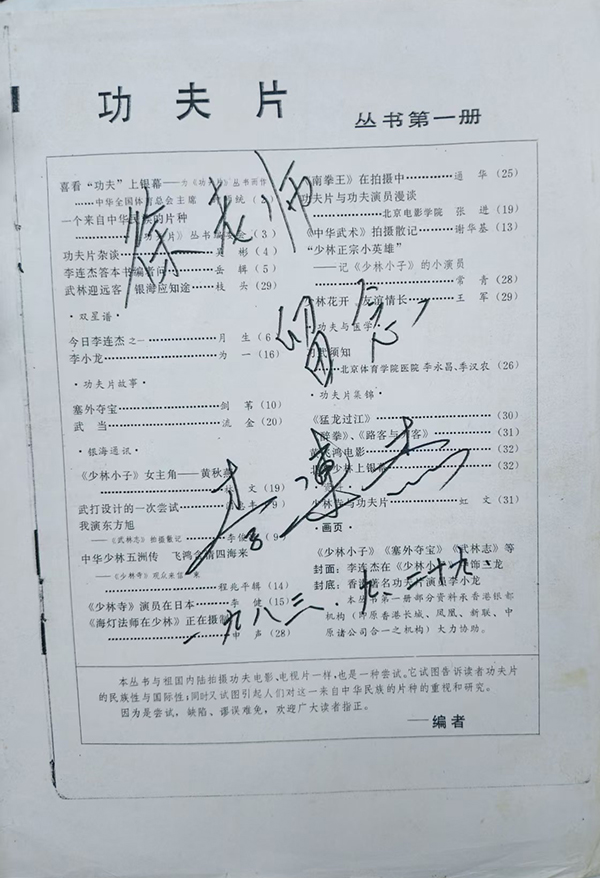 功夫片
丛书第一册
喜看“功夫”上银幕——为《功夫片》丛书而作
……中华全国体育总会主席
一个来自中华民族的片种
丛书编委会(3)
功夫片杂谈……彬(4)
李连杰答本书编者问……岳辑(5)
武林迎远客 银海应知途……枝头(29)
·双星谱·
今日李连杰之一……月生(6
李小龙……为一(16)
·功夫片故事·
塞外夺宝……剑苇(10)
武当……流金(20)
·银海通讯·
《少林小子》女主角——黄秋燕
文(19)
武打设计的一次尝试
我演东方旭
——《武林志》拍摄散记……李俊
中华少林五洲传 飞鸿会情四海来
——《少林寺》观众来信
程兆平辑(14)
《少林寺》演员在日本……李健(15)
《海灯法师在少林》正在摄制
申声(28)
《南拳王》在拍摄中……通华(25)
功夫片与功夫演员漫谈
北京电影学院 张进(19)
《中华武术》拍摄散记……谢华基(13)
“少林正宗小英雄”
——记《少林小子》的小演员
常青(28)
少林花开 友谊情长……王军(29)
·功夫与医学·
习武须知
北京体育学院医院 李永昌、季汉农(26)
·功夫片集锦·
《猛龙过江》……(30)
《醉拳》、《路客与刀客》……(31)
黄飞鸿电影……(32)
少林上银幕……(32)
少林寺与功夫片……虹文(31)
·画页·
《少林小子》《塞外夺宝》《武林志》等
封面:李连杰在《少林小子》中饰三龙
封底:香港著名功夫片演员李小龙
本丛书第一册部分资料承香港银都
机构(即原香港长城、凤凰、新联、中
原诸公司合一之机构)大力协助。
本丛书与祖国内陆拍摄功夫电影、电视片一样,也是一种尝试。它试图告诉读者功夫片
的民族性与国际性;同时又试图引起人们对这一来自中华民族的片种的重视和研究。
因为是尝试,缺陷、谬误难免,欢迎广大读者指正。
——编者
留念
李连杰
一九八三.九.二十九